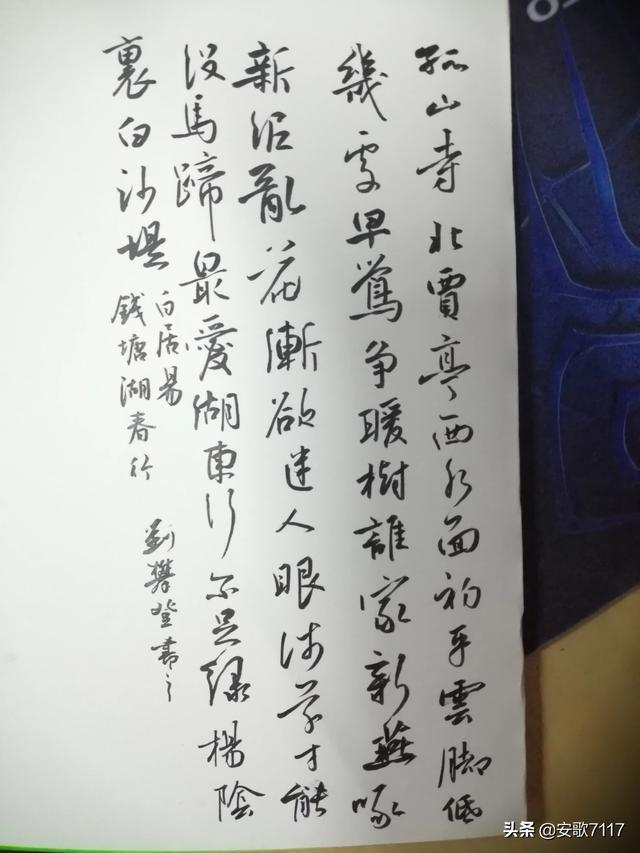 孤山寺北賈亭西水面初平雲脚低
幾處早鶯争暖樹誰家新燕啄
新泥亂花漸欲迷人眼淺草才能
没馬蹄最愛湖東行不足緑楊陰
裏白沙堤
白居易
錢塘湖春行
劉攀登書之
头条 @安歌7117